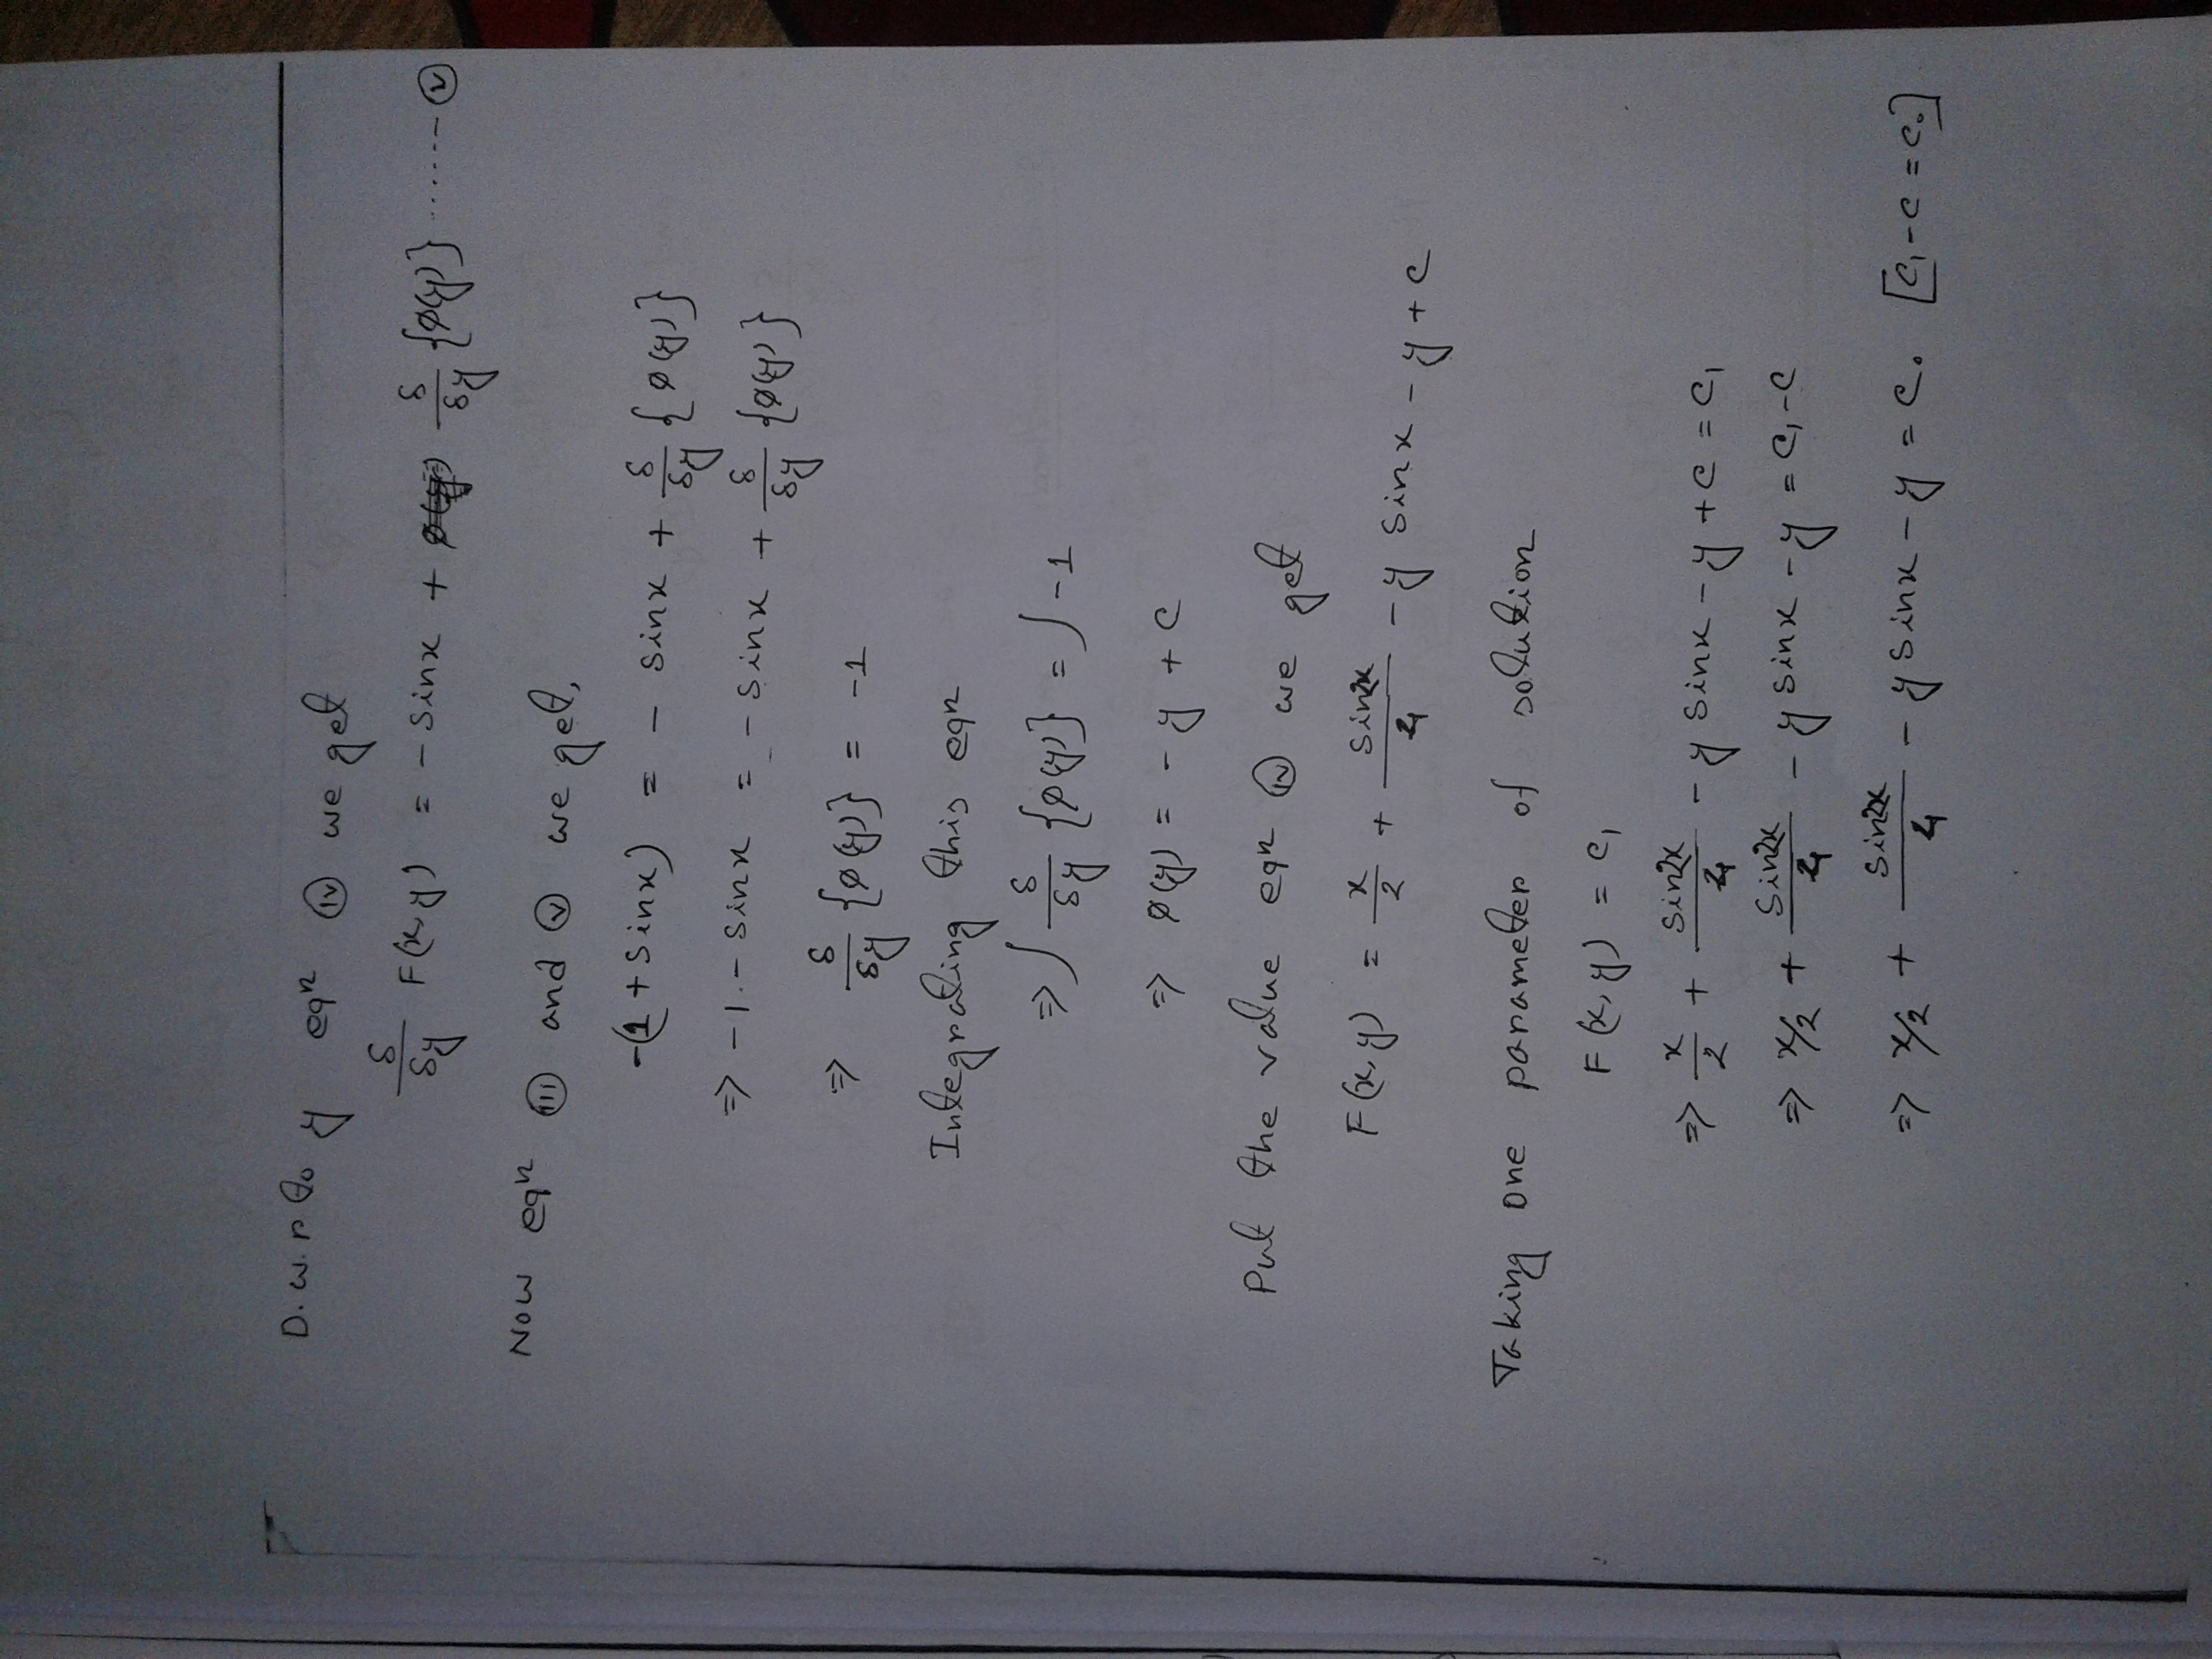 D.w.r to y eqn (iv) we get
δ/δy F(x,y) = - sinx + δ/δy {φ(y)} ...... (v)
Now eqn (iii) and (v) we get,
-(1 + sinx) = - sinx + δ/δy {φ(y)}
⇒ -1 - sinx = - sinx + δ/δy {φ(y)}
⇒ δ/δy {φ(y)} = -1
Integrating this eqn
⇒ ∫ δ/δy {φ(y)} = ∫ -1
⇒ φ(y) = - y + c
Put the value eqn (iv) we get
F(x,y) = x/2 + sin2x/4 - y sinx - y + c
Taking one parameter of solution
F(x,y) = c₁
⇒ x/2 + sin2x/4 - y sinx - y + c = c₁
⇒ x/2 + sin2x/4 - y sinx - y = c₁ - c
⇒ x/2 + sin2x/4 - y sinx - y = c₀ [c₁ - c = c₀]